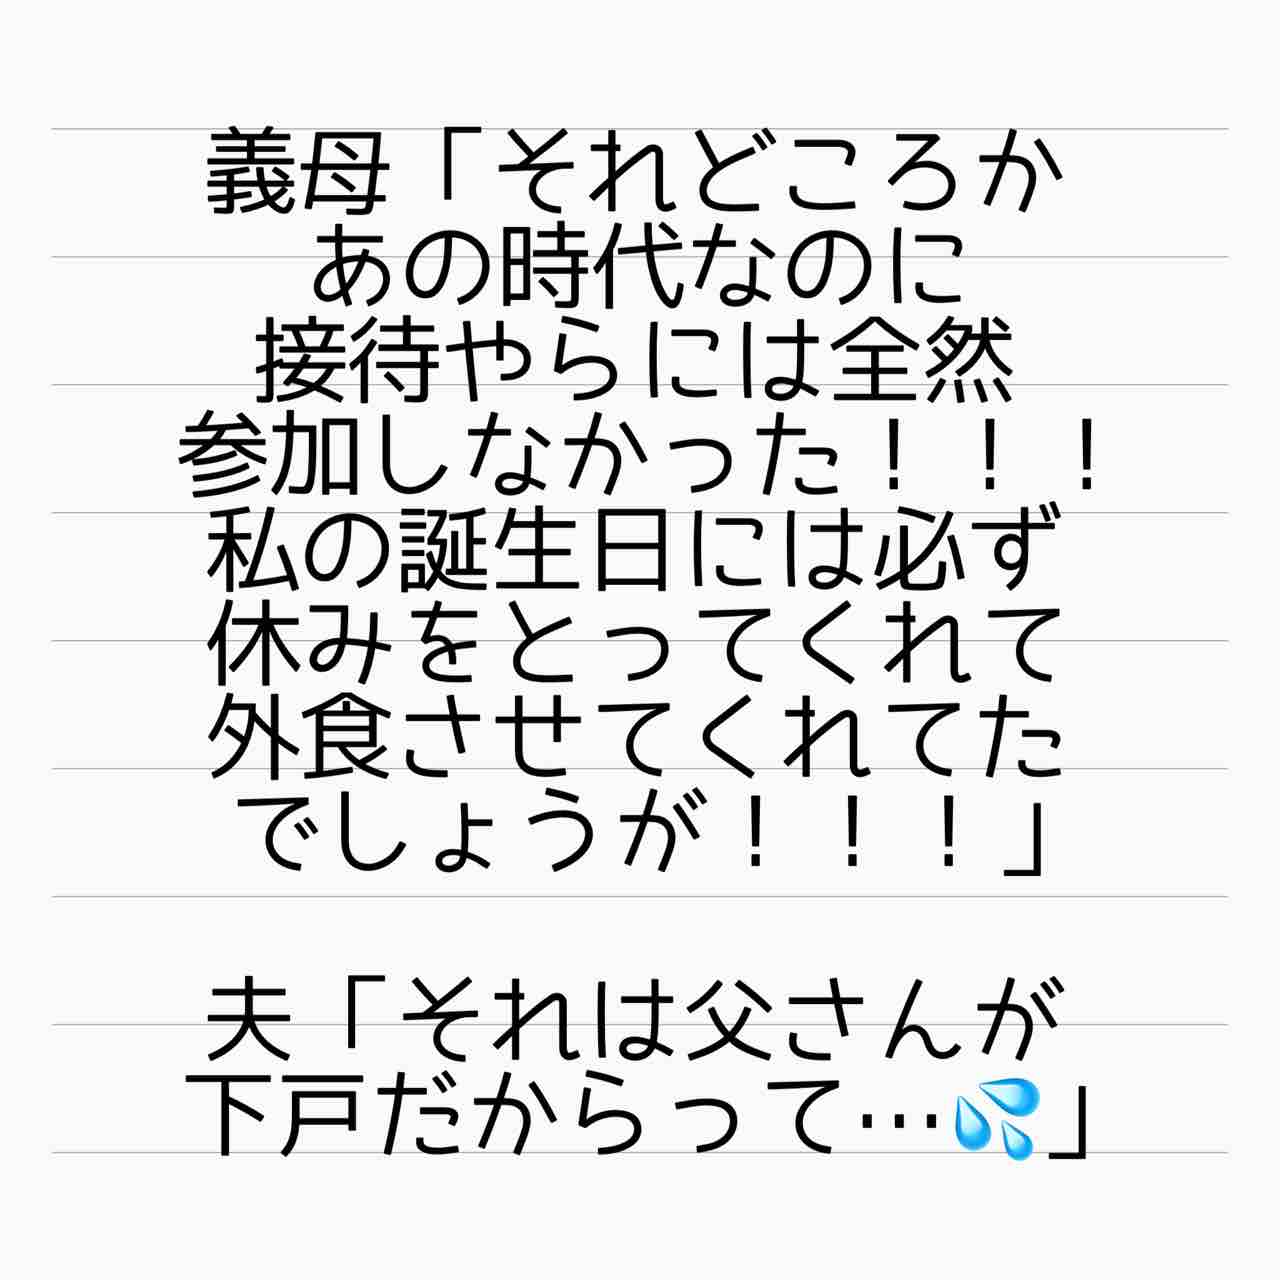 義母「それどころか
あの時代なのに
接待やらには全然
参加しなかった！！！
私の誕生日には必ず
休みをとってくれて
外食させてくれてた
でしょうが！！！」
夫「それは父さんが
下戸だからって…💦」